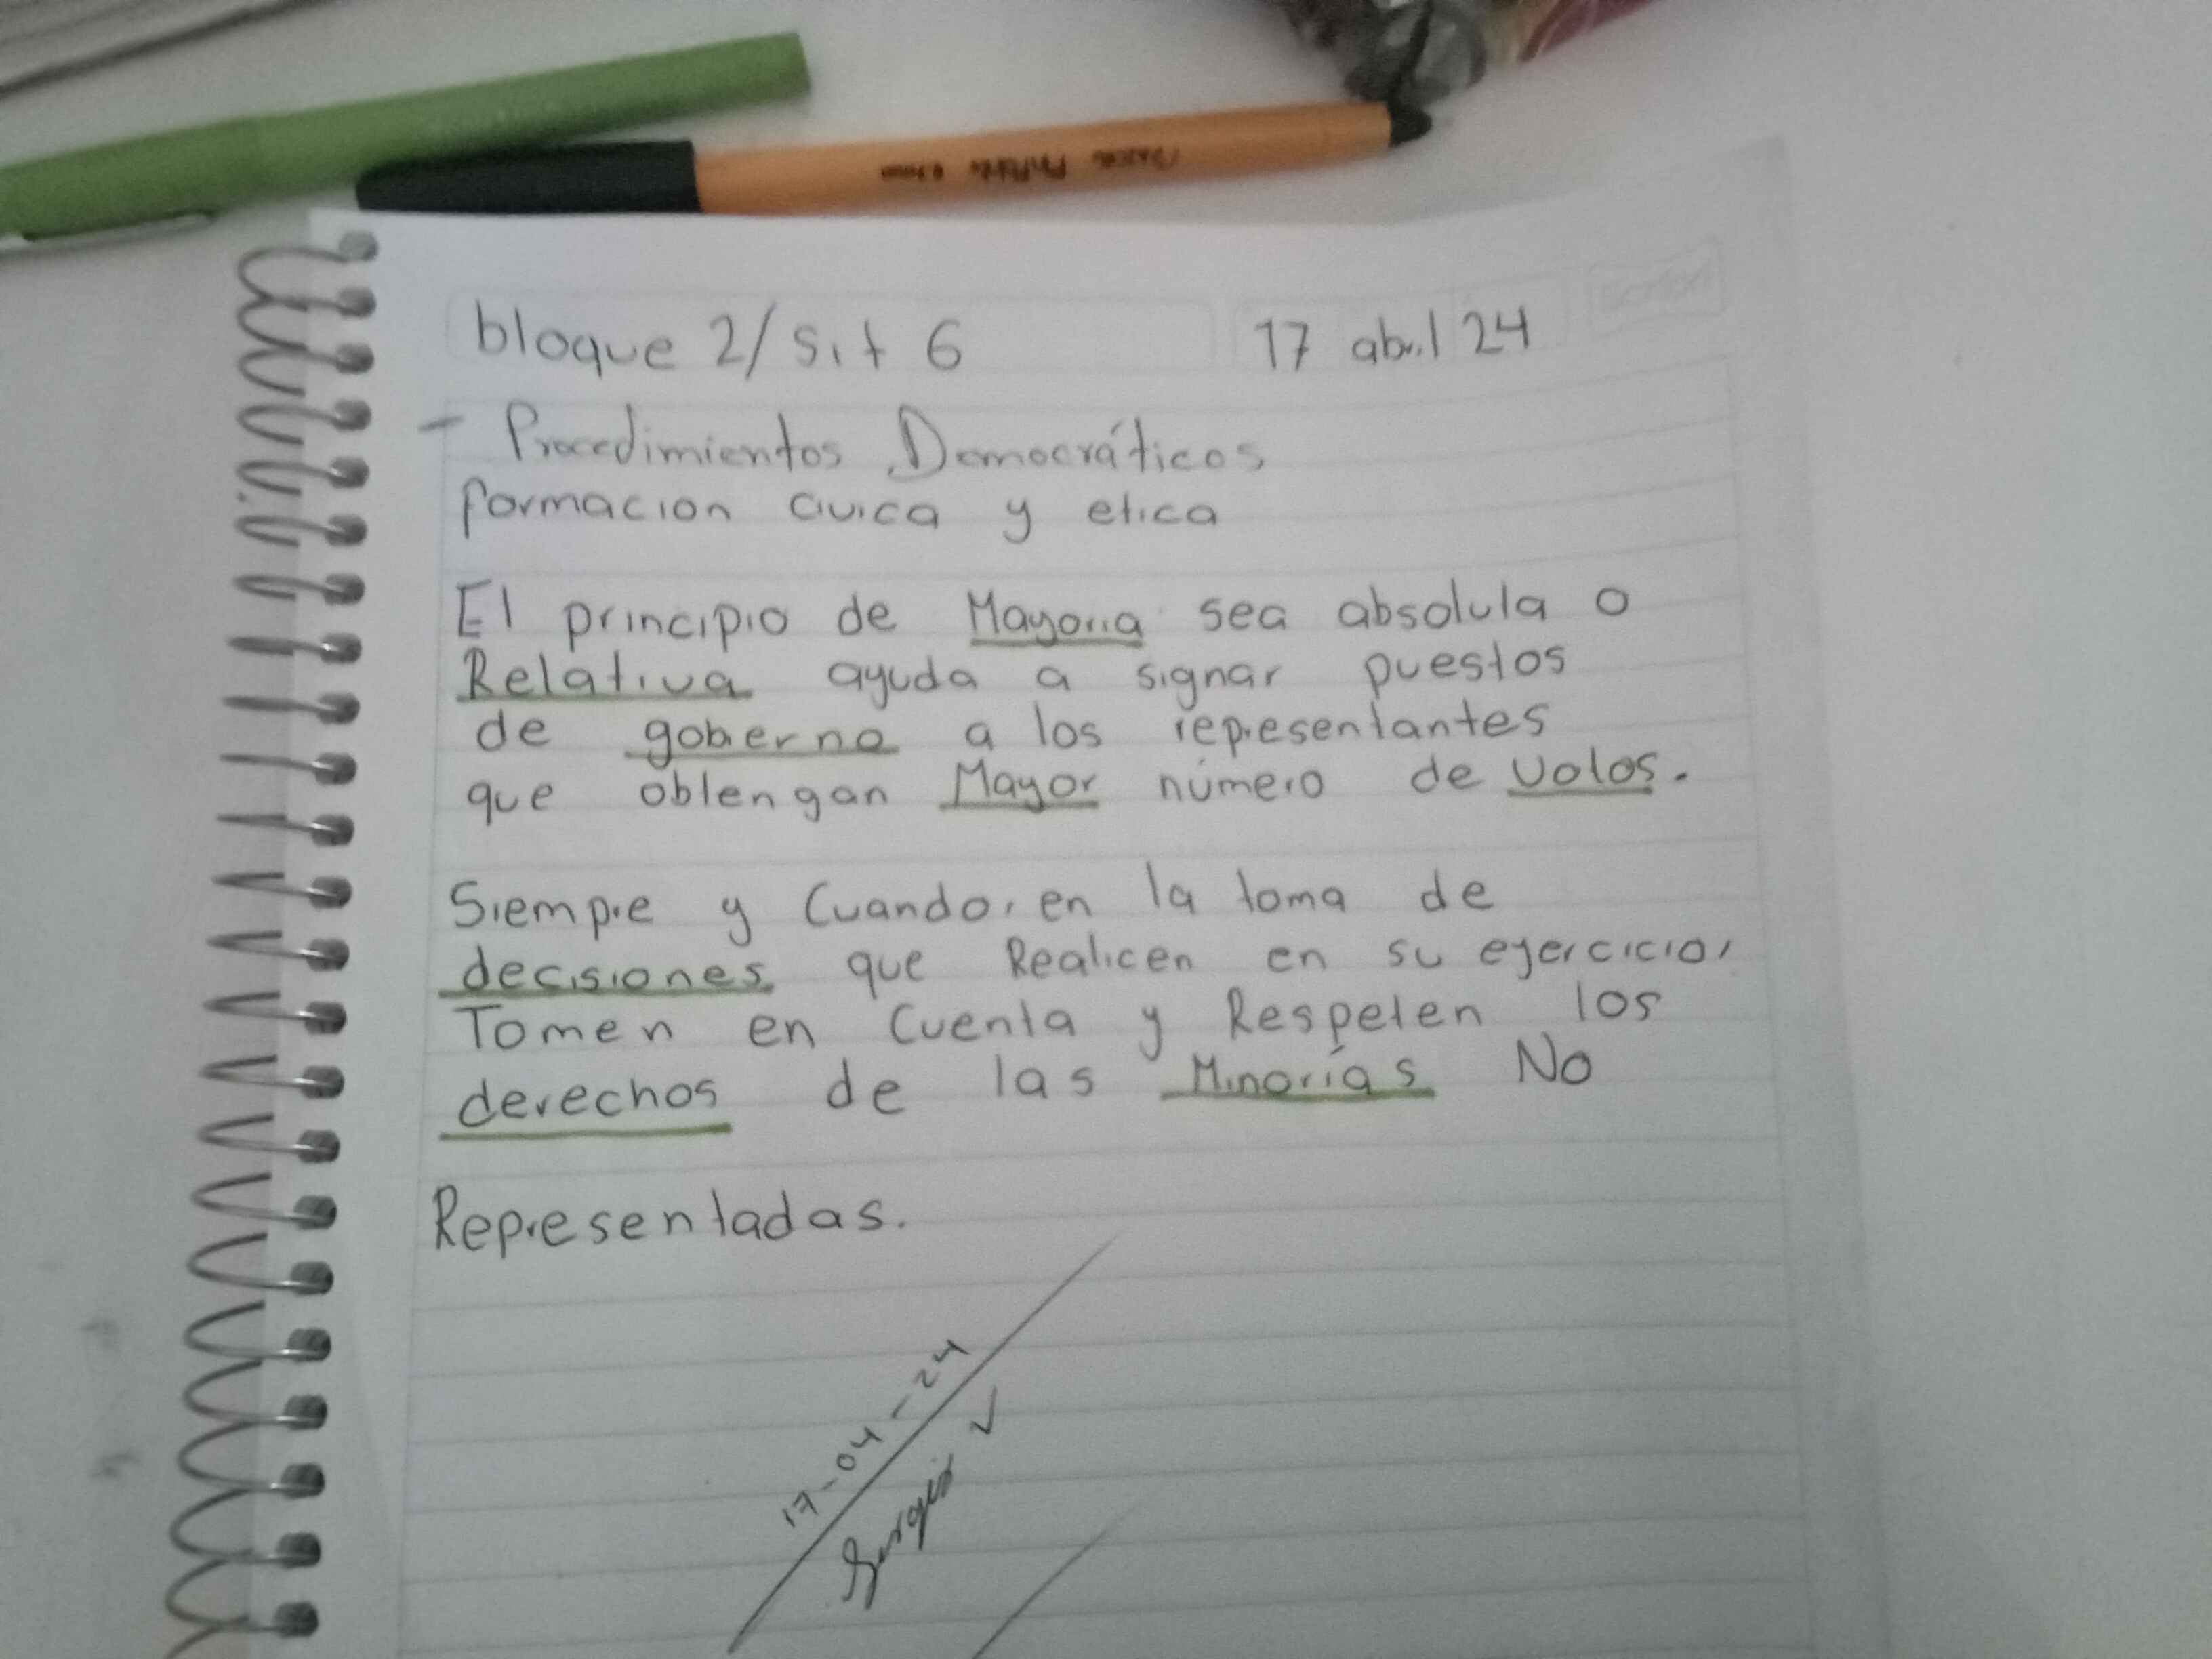 bloque 2/ sit 6 17 abril 24
- Procedimientos Democráticos
formacion civica y etica
El principio de Mayoria sea absoluta o
Relativa ayuda a signar puestos
de gobierno a los representantes
que obtengan Mayor número de votos.
Siempre y Cuando, en la toma de
decisiones que Realicen en su ejercicio,
Tomen en Cuenta y Respeten los
derechos de las Minorías No
Representadas.
17-04-24